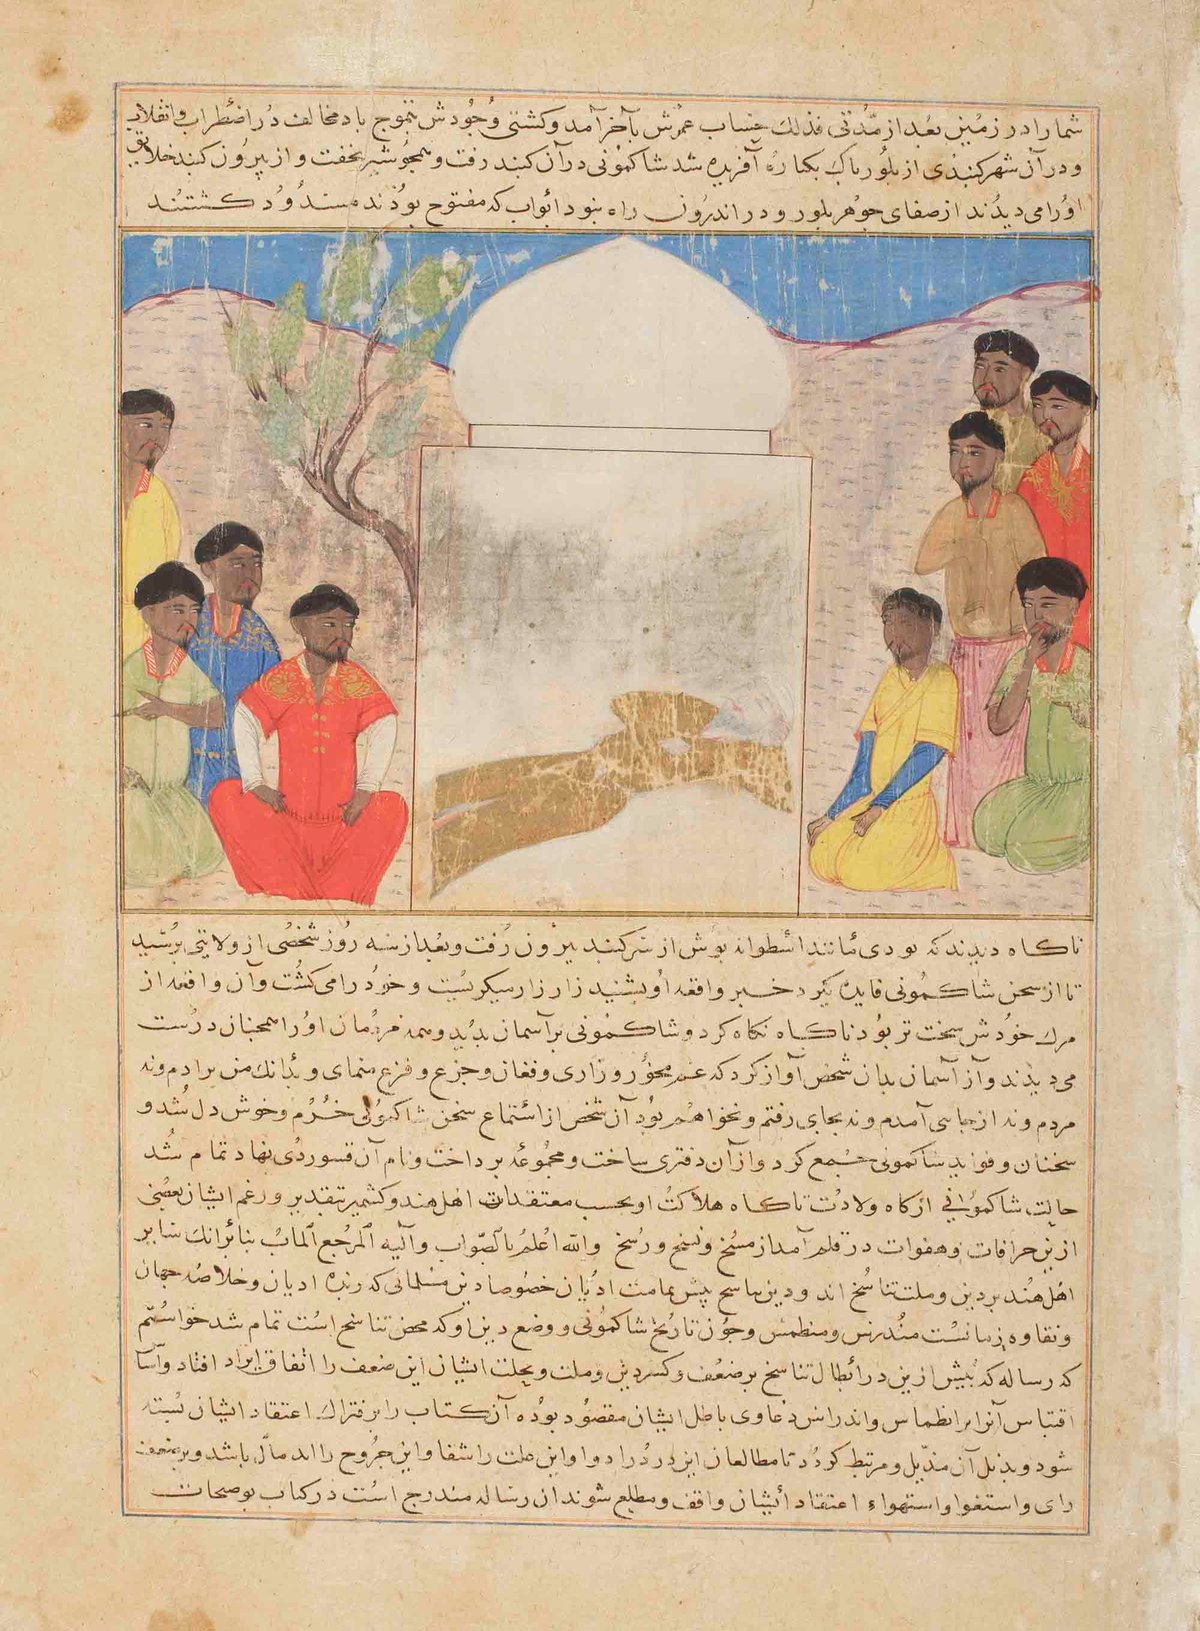 شما را در زمین بعد از مدتی فذلك حساب عمرش بآخر آمد و کشتی وجودش بتموج باد مخالف در اضطراب و انقلاب
و در آن شهر کنبدی از بلور پاك بکناره آفریده شد شاکمونی در آن کنبد رفت و همچو شیر بخفت و از بیرون کنبد خلایق
او را می دیدند از صفای جوهر بلور و در اندرون راه نبود ابواب که مفتوح بوذند مسدود کشتند
ناکاه دیدند که بودی مانند اسطوانه بوش از سر کنبد بیرون رفت و بعد از سه روز شخصی از ولایتی برسید
تا از سخن شاکمونی فایده کیرد خبر واقعه او بشنید زار زار میکریست و خود را می کشت و آن واقعه از
مرك خودش سخت تر بود ناکاه نکاه کرد و شاکمونی بر آسمان بدید و همه مردمان او را همچنان درست
می دیدند و از آسمان بدان شخص آواز کرد که غم مخور و زاری و فغان و جزع و فزع منمای و بدانك من نه زادم و نه
مردم و نه از جایی آمدم و نه بجایی رفتم و نخواهم بود آن شخص از استماع سخن شاکمونی خرم و خوش دل شد و
سخنان و فواید شاکمونی جمع کرد و از آن دفتری ساخت و مجموعه برداخت و نام آن نهاد تمام شد
حالت شاکمونی از کاه ولادت تا کاه هلاکت او بحسب معتقدات اهل هند و کشمیر بتقدیر و رغم ایشان بعضی
ازین خرافات و هفوات در قلم آمد از مسخ و نسخ و رسخ والله اعلم بالصواب و الیه المرجع المآب بنابرانك سایر
اهل هند بر دین و ملت تناسخ اند و دین تناسخ پیش تمامت ادیان خصوصا دین مسلمانی که زبده ادیان و خلاصه جهان
و نقاوه زمانست مندرس و منطمس و چون تاریخ شاکمونی و وضع دین او که محض تناسخ است تمام شد خواستم
که رساله که پیش ازین در ابطال تناسخ بر ضعف و کسر دین و ملت و نحلت ایشان این ضعیف را اتفاق ایراد افتاد و آسا
اقتباس آنرا بر انطماس و اندراس دعاوی باطل ایشان مقصود بوده آن کتاب را بر فتراك اعتقاد ایشان بسته
شود و بذیل آن مذیل و مرتبط کردد تا مطالعان این درد را دوا و این علت را شفا و این جروح را اندمال باشد و بر ضعف
رای و استغوا و استهواء اعتقاد ایشان واقف و مطلع شوند آن رساله مندرج است در کتاب توضیحات